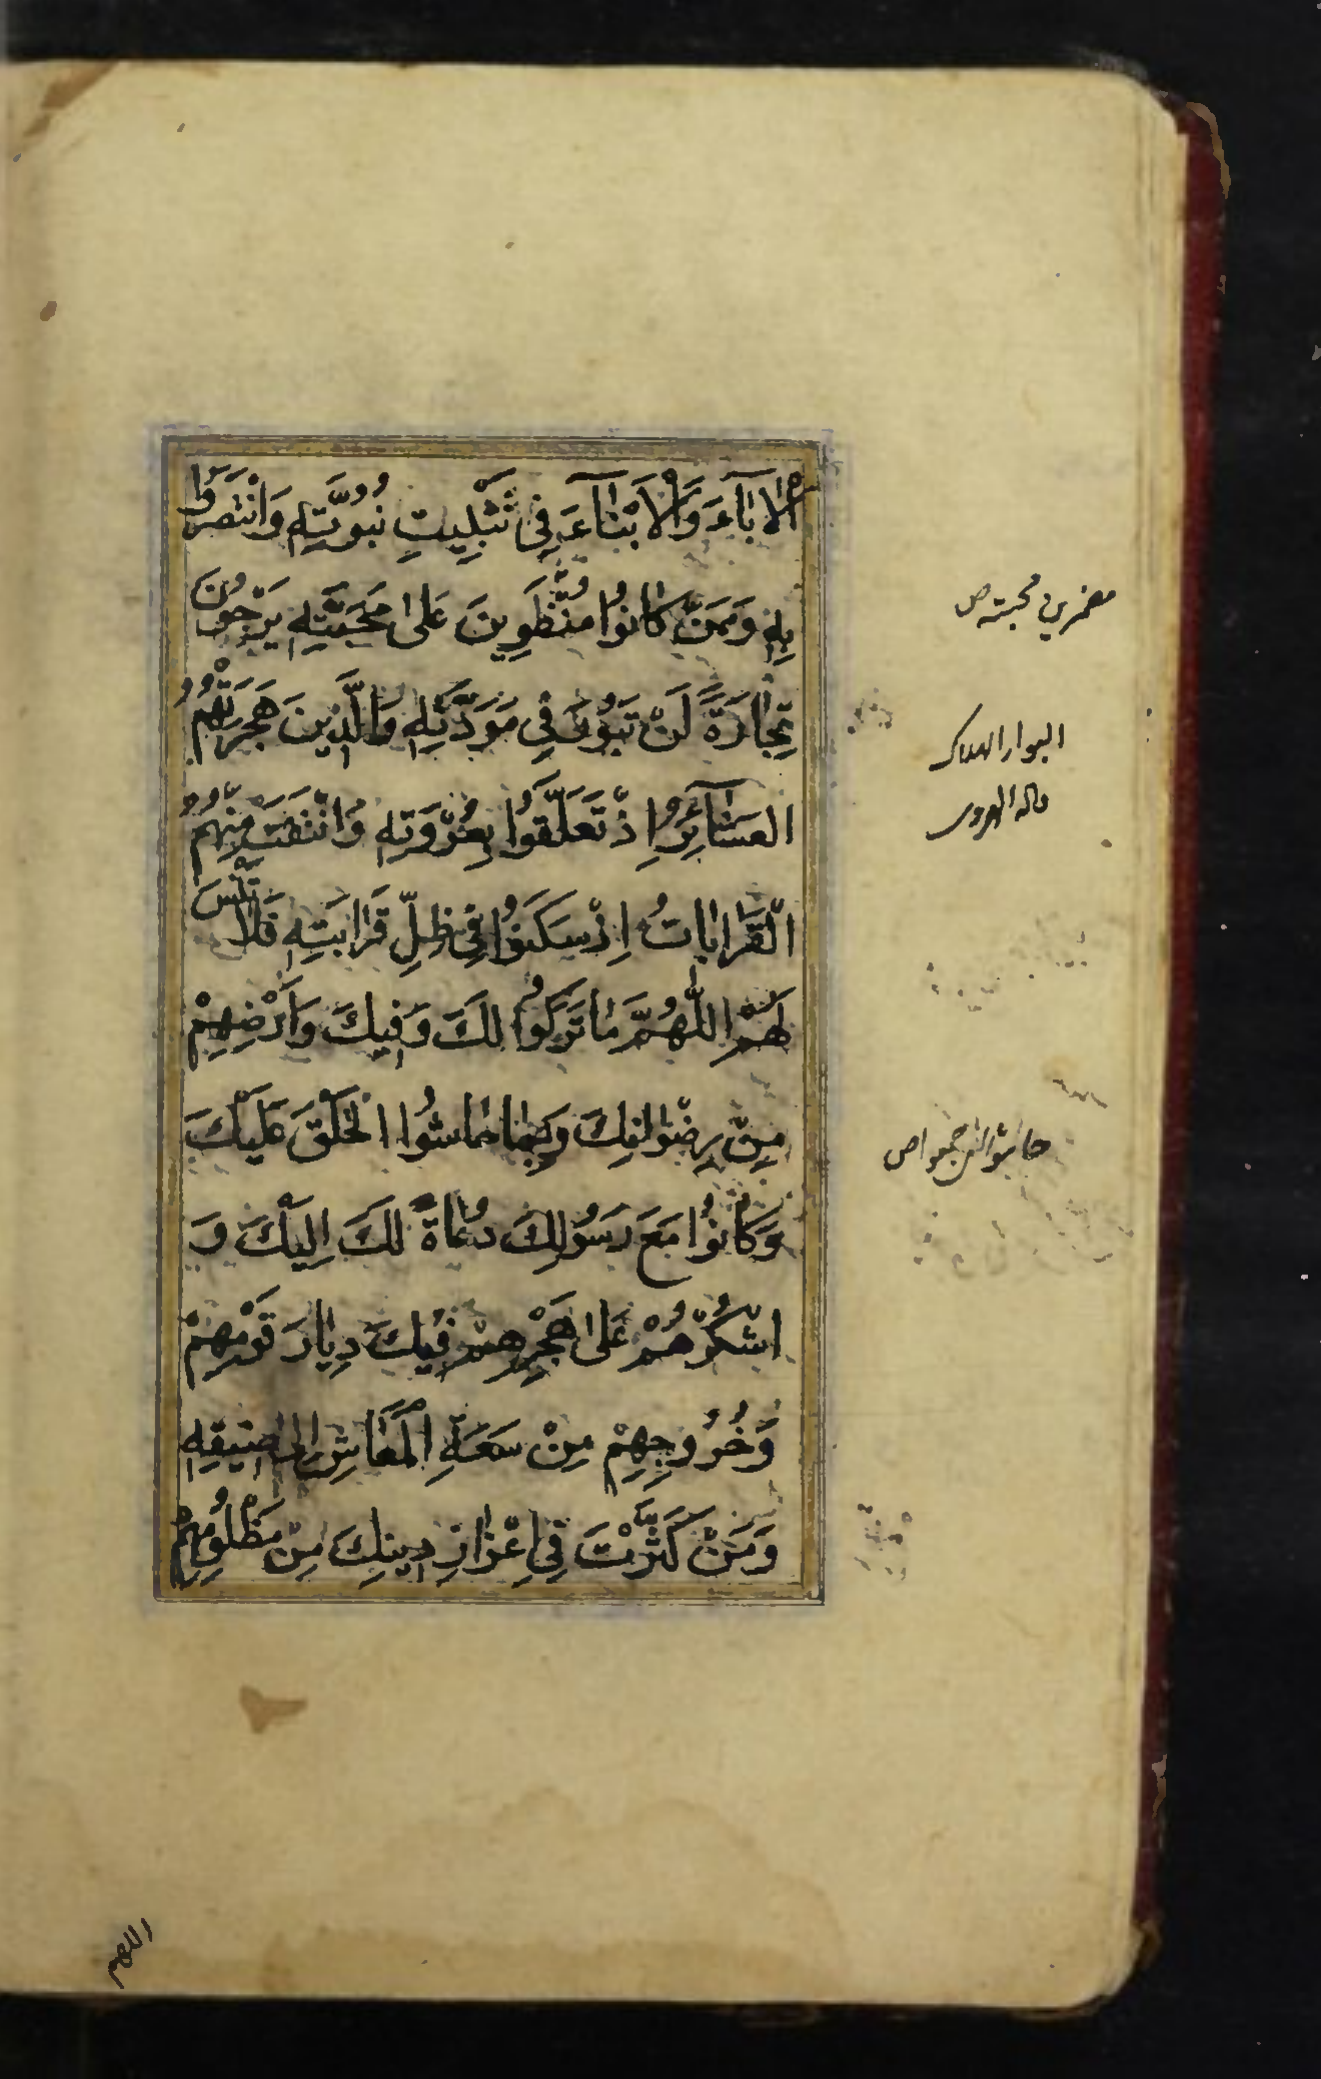 الْآبَآءَ وَالْأَبْنَآءَ فِي تَثْبِيتِ نُبُوَّتِهِ وَانْتَصَرُوا
بِهِ وَمَنْ كَانُوا مُنْطَوِينَ عَلَى مَحَبَّتِهِ يَرْجُونَ
تِجَارَةً لَنْ تَبُورَ فِي مَوَدَّتِهِ وَالَّذِينَ هَجَرَتْهُمُ
الْعَشَآئِرُ إِذْ تَعَلَّقُوا بِعُرْوَتِهِ وَانْتَفَتْ مِنْهُمُ
الْقَرَابَاتُ إِذْ سَكَنُوا فِي ظِلِّ قَرَابَتِهِ فَلَا تَنْسَ
لَهُمُ اللَّهُمَّ مَا تَرَكُوا لَكَ وَفِيكَ وَأَرْضِهِمْ
مِنْ رِضْوَانِكَ وَبِمَا حَاشُوا الْخَلْقَ عَلَيْكَ
وَكَانُوا مَعَ رَسُولِكَ دُعَاةً لَكَ إِلَيْكَ وَ
اشْكُرْهُمْ عَلَى هَجْرِهِمْ فِيكَ دِيَارَ قَوْمِهِمْ
وَخُرُوجِهِمْ مِنْ سَعَةِ الْمَعَاشِ إِلَى ضِيقِهِ
وَمَنْ كَثَّرْتَ فِي إِعْزَازِ دِينِكَ مِنْ مَظْلُومِهِمْ
مضمرين محبته ص
البوار الهلاك
قاله الهروي
حاشوا اى جمعوا ص
اللهم